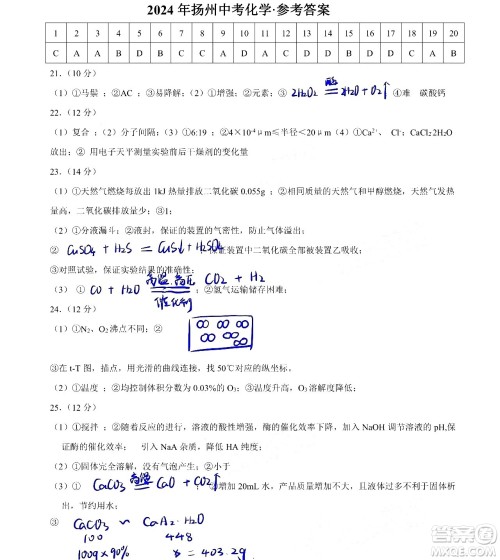 2024 年扬州中考化学·参考答案
1 2 3 4 5 6 7 8 9 10 11 12 13 14 15 16 17 18 19 20
C A A C B C D A B D D C B B D D C B A C
21.（10 分）
（1）①马鬃 ；②A ；③易降解；（2）①增强；②元素；③ 2H2O2 =酶= 2H2O+O2↑ ④难 碳酸钙
22.（12 分）
（1）复合；（2）分子间隔；（3）①6:19 ；②4×10⁻⁴μm≤半径<20μm（4）①Ca²⁺、 Cl⁻；CaCl₂·2H₂O
放出；② 用电子天平测量实验前后干燥剂的变化量
23.（14 分）
（1）①天然气燃烧每放出 1kJ 热量排放二氧化碳 0.055g ；②相同质量的天然气和甲醇燃烧，天
然气，二氧化碳排放量少；③1；
（2）①分液漏斗；②液封，保证装置的气密性，防止气体溢出；
② CuSO4 + H2S = CuS↓+H2SO4 ；保证装置中二氧化碳全部被装置乙吸收；
③对照试验，保证实验结果的准确性；
（3）① CO + H2O =高温.高压 催化剂= CO2 + H2 ；②氢气运输储存困难；
24.（12 分）
（1）①N₂、O₂ 沸点不同；②
③在 t-T 图，描点，用光滑的曲线连接，找 50℃对应的纵坐标。
（2）①温度 ；②均控制体积分数为 0.03%的 O₃；③温度升高，O₃分解速率加快。
25.（12 分）
（1）①搅拌 ；②随着反应的进行，溶液的酸性增强，酶的催化效率下降，加入 NaOH 调节溶液的 pH,保
证酶的催化效率； 引入 NaA 杂质，使得 HA 纯度低；
（2）①固体完全溶解，没有气泡产生；②小于
（3）① CaCO3 =高温= CaO + CO2↑ 增加 20mL 水，产品质量增加不大，且活水体过多不利于固体析
出，节约用水；
③ CaCO3 ~ CaA2·H2O
100 448
100g×90% x = 403.2g
答案圈